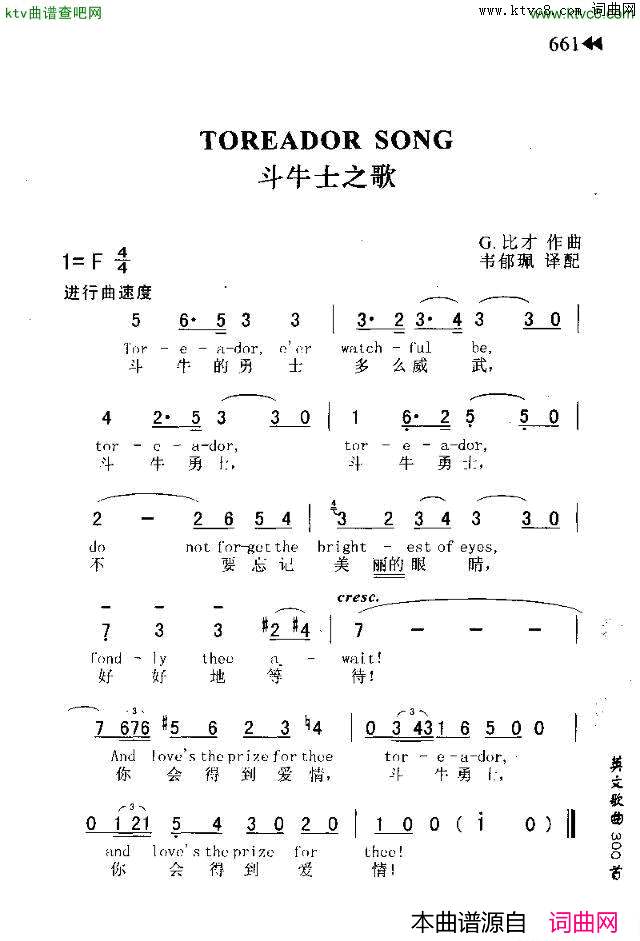 ktv曲谱查吧网
www.ktvc8.com 词曲网
www.ktvc8.com
661
TOREADOR SONG
斗牛士之歌
1= F 4/4
G.比才 作曲
韦郁珮 译配
进行曲速度
5 6· 5 3 3 | 3· 2 3· 4 3 3 0 |
Tor - e - a-dor, e'er watch - ful be,
斗 牛 的 勇 士 多 么 威 武,
4 2· 5 3 3 0 | 1 6· 2 5 5 0 |
tor - e - a-dor, tor - e - a-dor,
斗 牛 勇 士, 斗 牛 勇 士,
2 - 2 6 5 4 | 4 3 2 3 4 3 3 0 |
do not for-get the bright - est of eyes,
不 要 忘 记 美 丽的 眼 睛,
cresc.
7 3 3 #2 #4 | 7 - - - |
fond - ly thee a - wait!
好 好 地 等 待!
7 676 #5 6 2 3 ♮4 | 0 3 43 1 6 5 0 0 |
And love's the prize for thee tor - e - a-dor,
你 会 得 到 爱 情, 斗 牛 勇 士,
0 1 21 5 4 3 0 2 0 | 1 0 0 ( i 0 ) ‖
and love's the prize for thee!
你 会 得 到 爱 情!
英文歌曲300首
本曲谱源自 词曲网